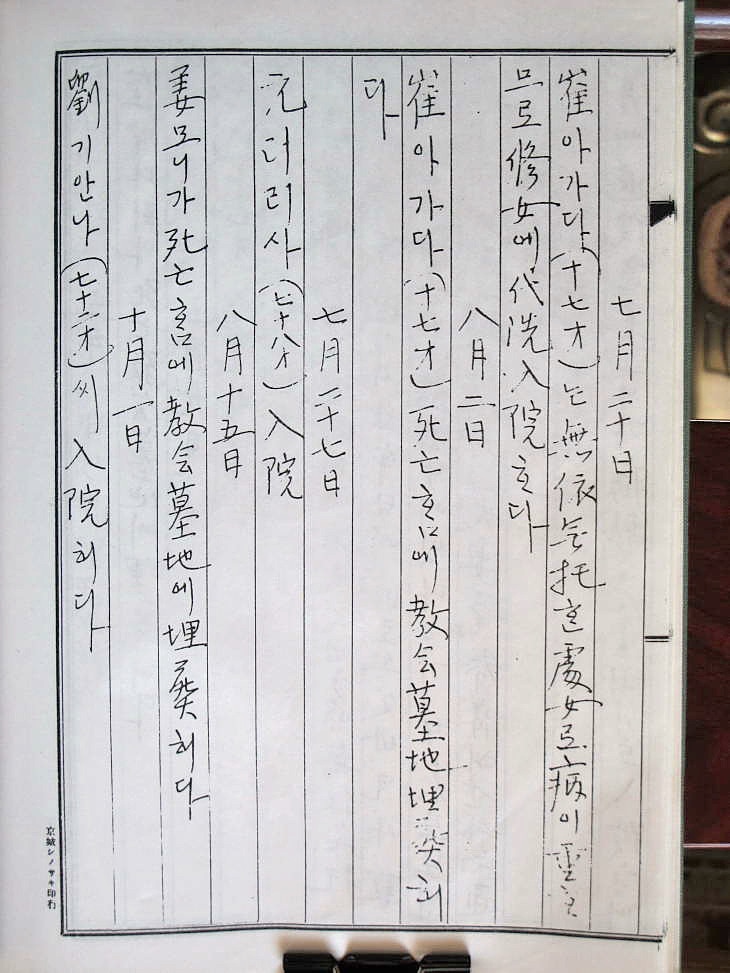 七月二十日
崔아가다(十七才)는 無依無托한 處女로 病이 重하
므로 修女에 代洗入院하다
八月二日
崔아가다(十七才) 死亡함에 敎会墓地埋葬하
다
七月二十七日
元더리사(七十八才)入院
八月十五日
姜모니가死亡함에敎会墓地에埋葬하다
十月一日
劉기안나(七十一才)씨入院하다
京城シノザキ印行